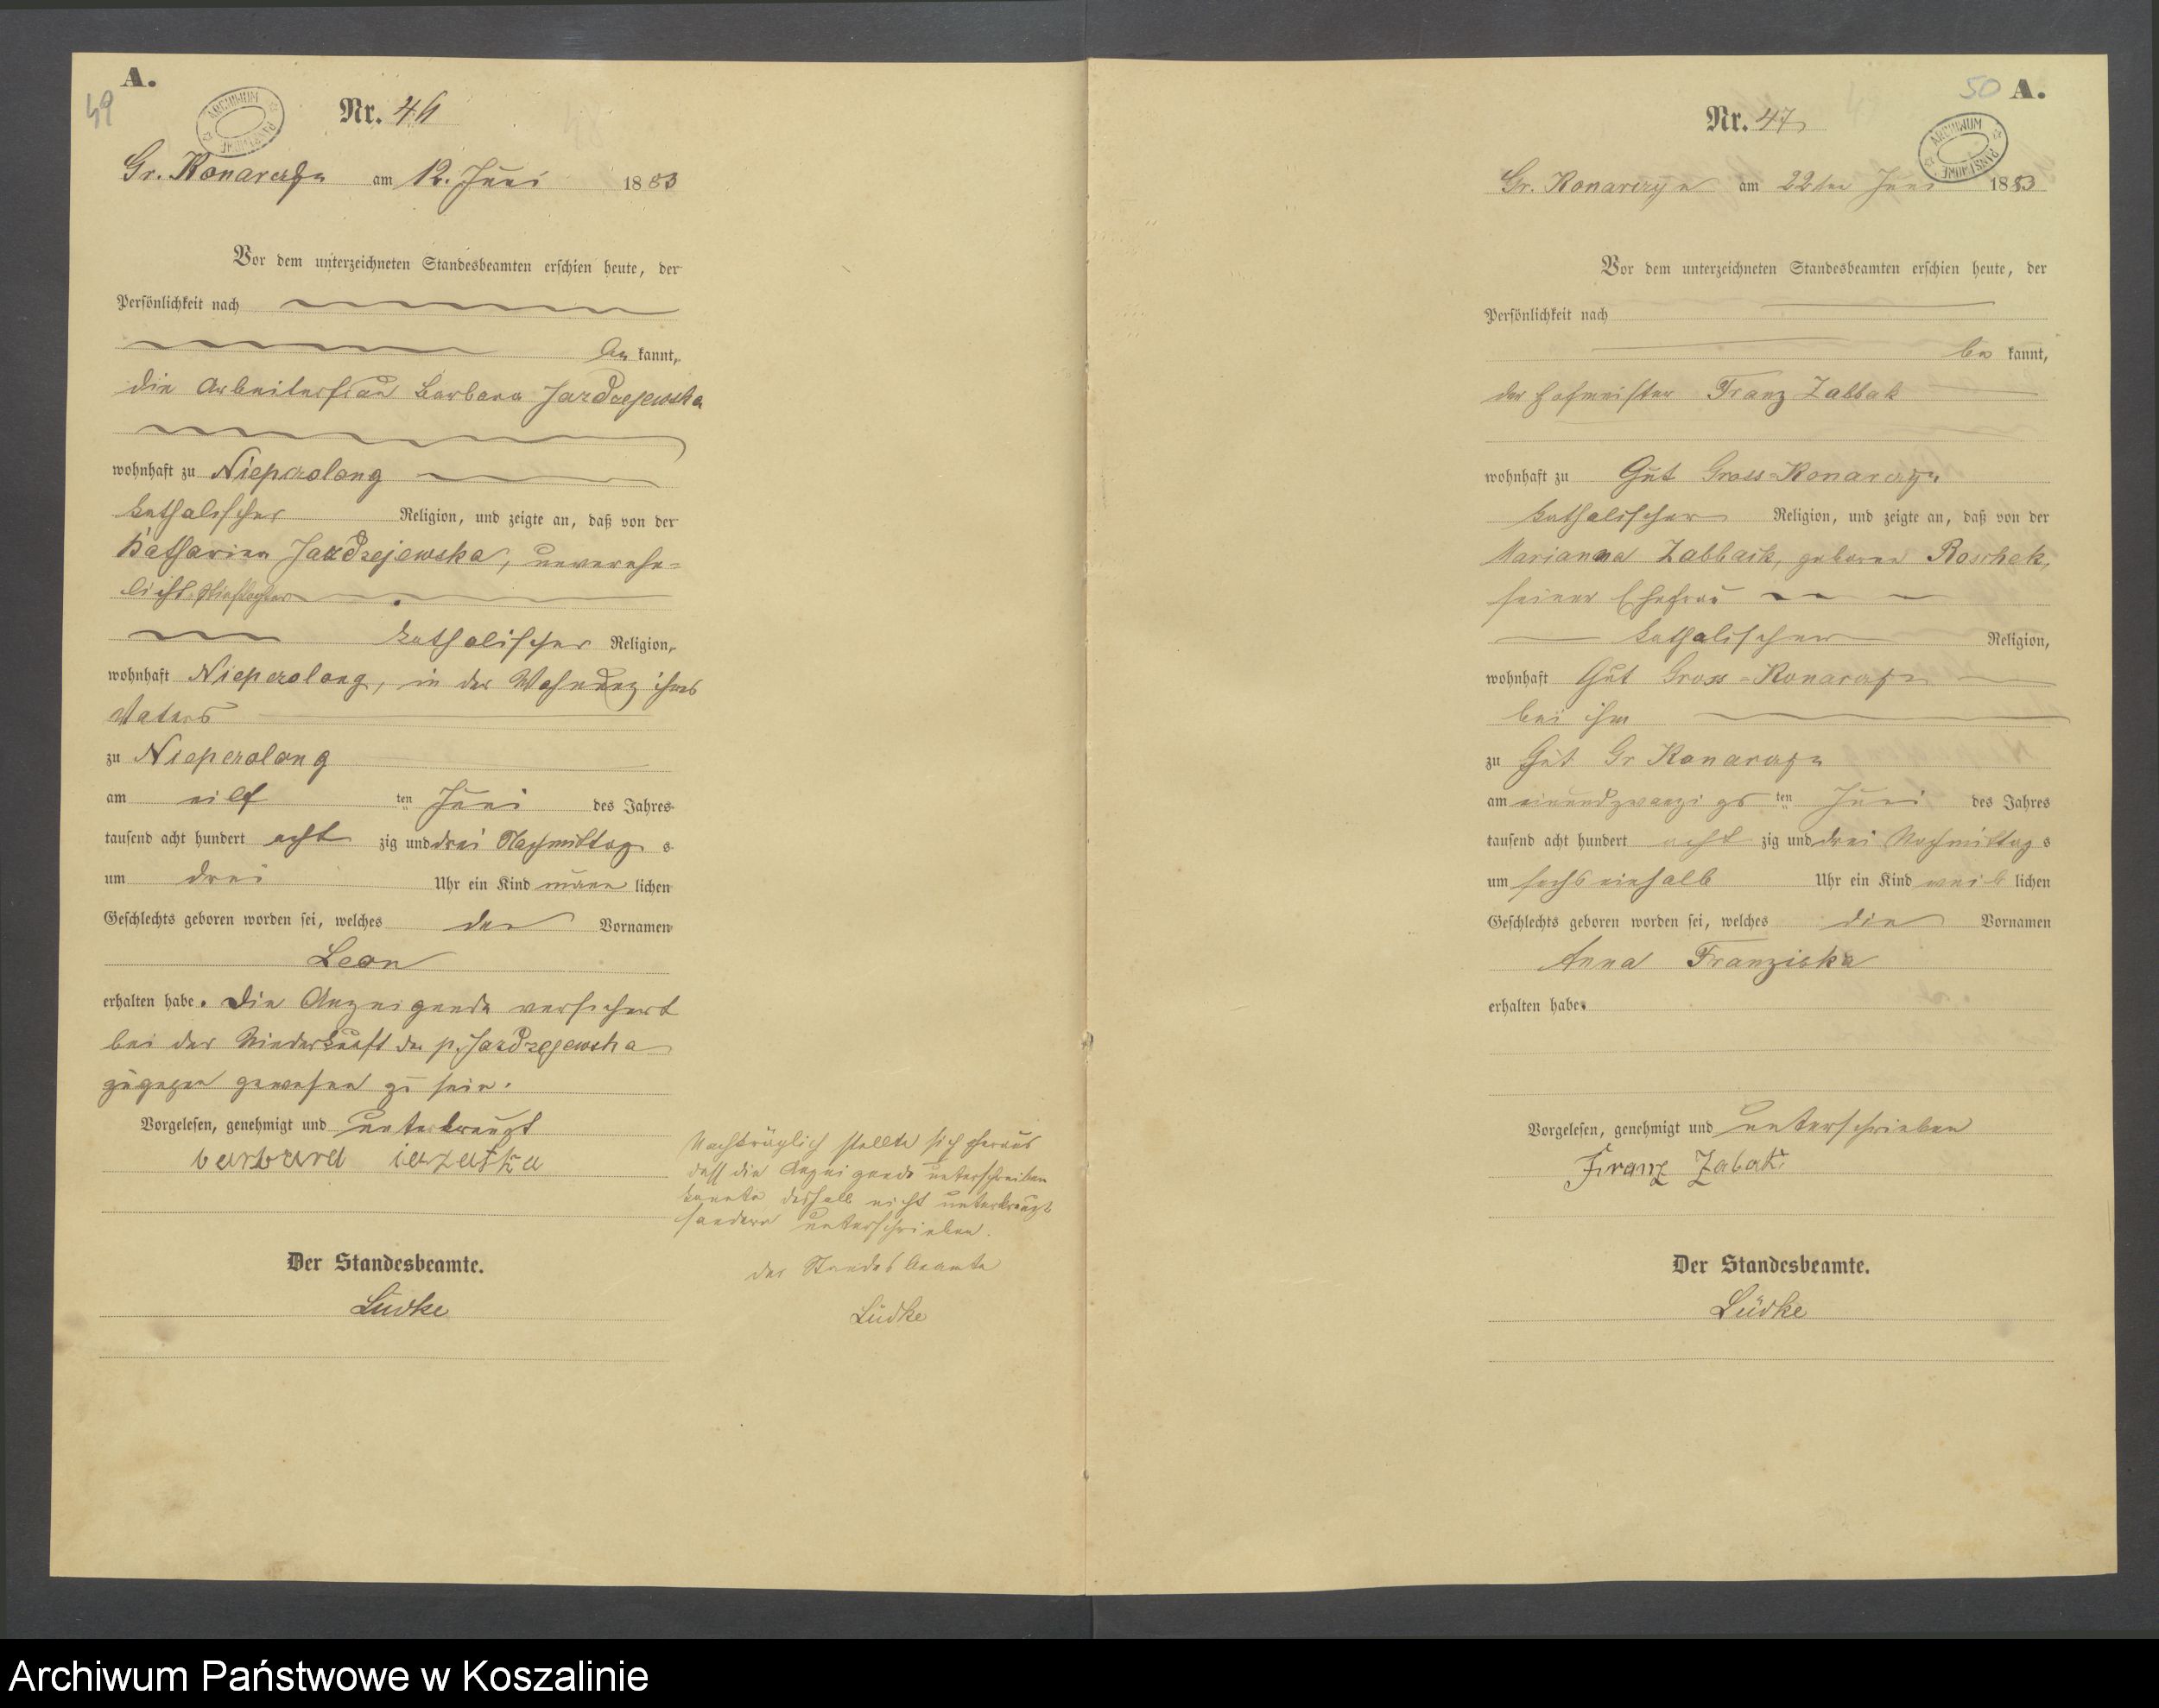 A.
49
ARCHIWUM PAŃSTWOWE
Nr. 46
Gr. Konarczyn am 12. Juni 1883
Vor dem unterzeichneten Standesbeamten erschien heute, der
Persönlichkeit nach
be kannt,
die Arbeiterfrau Barbara Jazdzejewska
wohnhaft zu Nieperolong
katholischer Religion, und zeigte an, daß von der
Katharina Jazdzejewska, unverehe-
licht
katholischer Religion,
wohnhaft Nieperolong, in der Wohnung ihres
Vaters
zu Nieperolong
am eilf ten Juni des Jahres
tausend acht hundert acht zig und drei Nachmittag s
um drei Uhr ein Kind männ lichen
Geschlechts geboren worden sei, welches den Vornamen
Leon
erhalten habe. Die Anzeigende versichert
bei der Niederkunft der p. Jazdzejewska
zugegen gewesen zu sein.
Vorgelesen, genehmigt und unterkreuzt
barbara
Der Standesbeamte.
Lüdke
Nachträglich stellte sich heraus
daß die Anzeigende unterschreiben
konnte deshalb nicht unterkreuzt
sondern unterschrieben.
der Standesbeamte
Lüdke
50 A.
ARCHIWUM PAŃSTWOWE
Nr. 47
Gr. Konarczyn am 22ten Juni 1883
Vor dem unterzeichneten Standesbeamten erschien heute, der
Persönlichkeit nach
be kannt,
der Hofmeister Franz Zabbak
wohnhaft zu Gut Gross-Konarczyn
katholischer Religion, und zeigte an, daß von der
Marianna Zabback, geborene Roschek,
seiner Ehefrau
katholischer Religion,
wohnhaft Gut Gross-Konarczyn
bei ihm
zu Gut Gr Konarczyn
am einundzwanzigs ten Juni des Jahres
tausend acht hundert acht zig und drei Nachmittag s
um sechs einhalb Uhr ein Kind weib lichen
Geschlechts geboren worden sei, welches die Vornamen
Anna Franziska
erhalten habe.
Vorgelesen, genehmigt und unterschrieben
Franz Zabak
Der Standesbeamte.
Lüdke
Archiwum Państwowe w Koszalinie